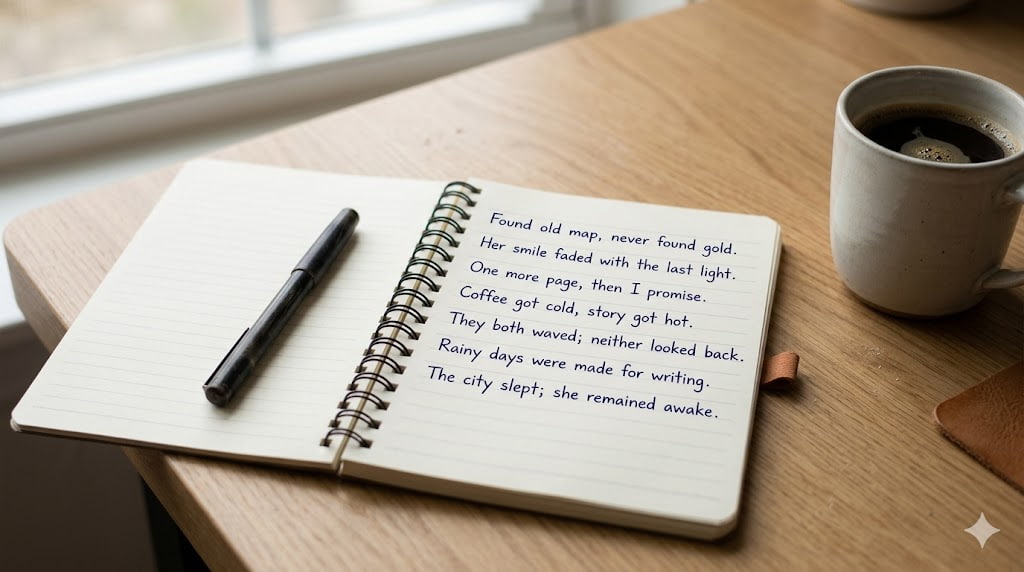 Found old map, never found gold.
Her smile faded with the last light.
One more page, then I promise.
Coffee got cold, story got hot.
They both waved; neither looked back.
Rainy days were made for writing.
The city slept; she remained awake.